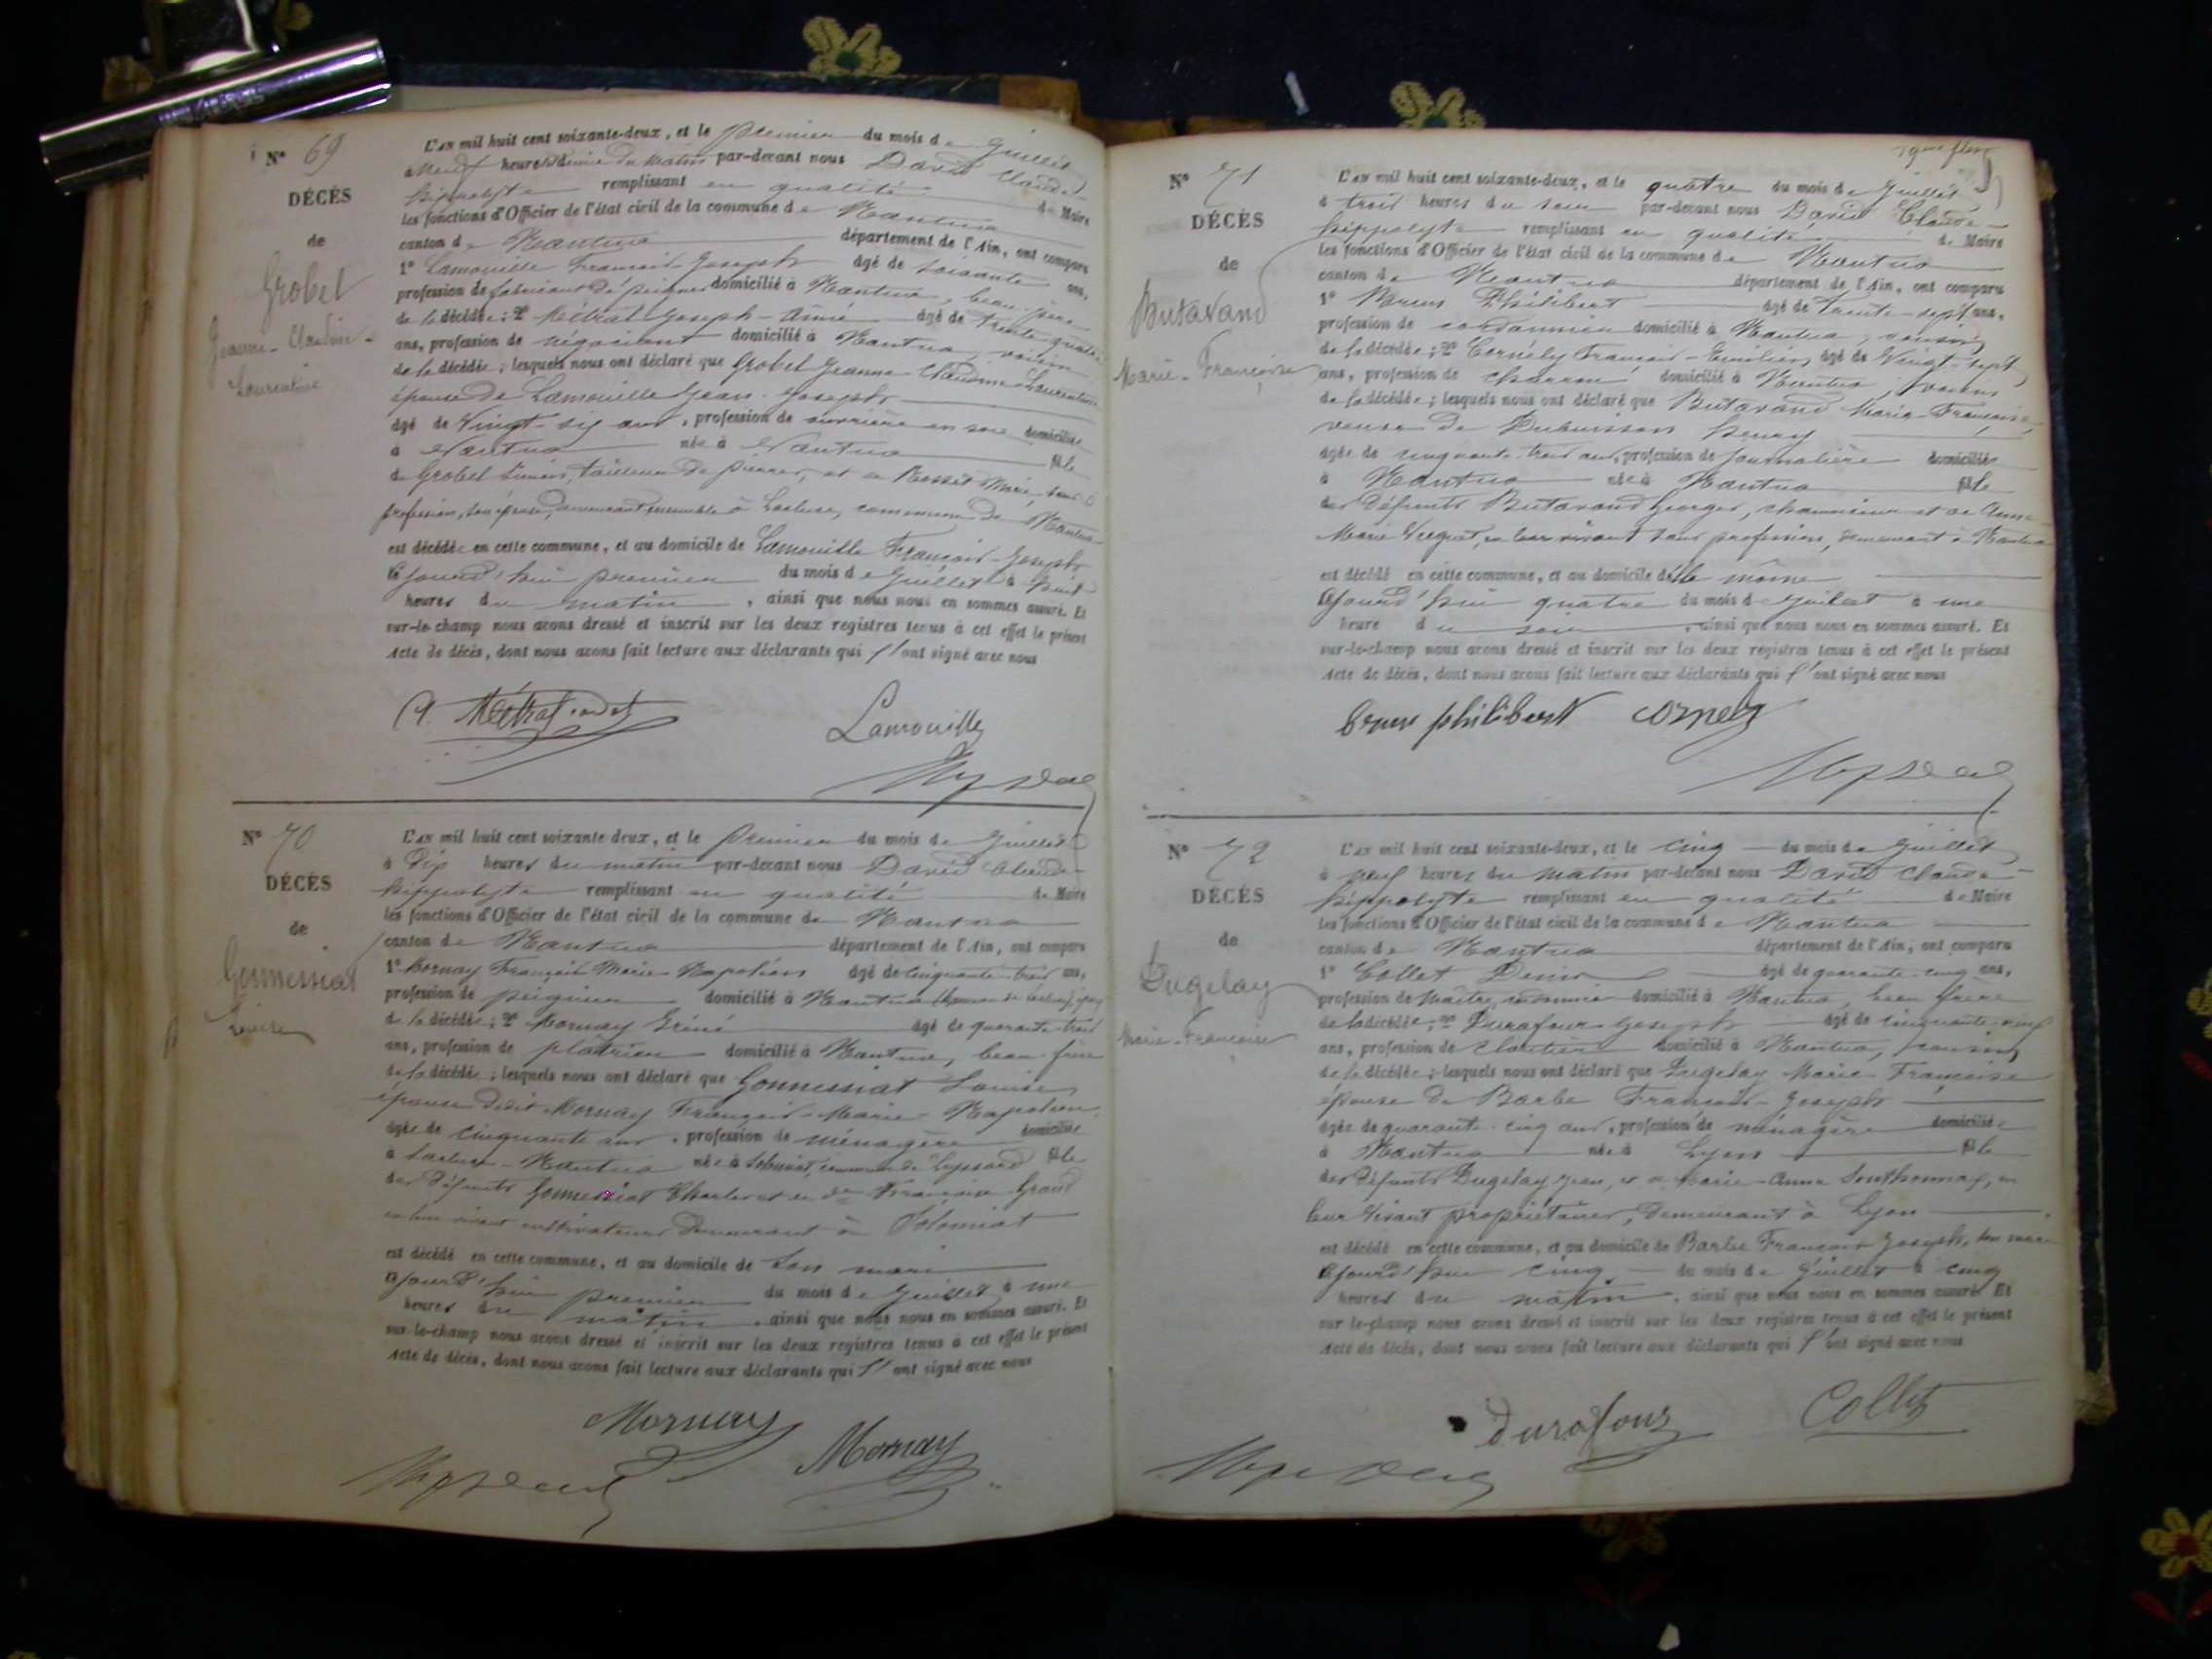 N° 69
DÉCÈS
de
Grobel
Jeanne-Claudine-
Laurentine
L'an mil huit cent soixante-deux, et le premier du mois de Juillet
à Neuf heures & demie du matin par-devant nous David Claude
hippolyte remplissant en qualité de Maire
les fonctions d'Officier de l'état civil de la commune de Nantua
canton de Nantua département de l'Ain, ont comparu
1° Lamouille François-Joseph âgé de soixante ans,
profession de fabricant de peignes domicilié à Nantua, beau-père
de la décédée; 2° Métral Joseph-Aimé âgé de trente-quatre
ans, profession de négociant domicilié à Nantua, voisin
de la décédée; lesquels nous ont déclaré que Grobel Jeanne-Claudine-Laurentine
épouse de Lamouille Jean-Joseph
âgé de Vingt-six ans, profession de ouvrière en soie domiciliée
à Nantua née à Nantua fille
de Grobel Simon, tailleur de pierres, et de Rosset Marie, sans
profession, son épouse, demeurant ensemble à Lacluse, commune de Nantua
est décédée en cette commune, et au domicile de Lamouille François-Joseph
cejourd'hui premier du mois de Juillet à huit
heures du matin, ainsi que nous nous en sommes assuré. Et
sur-le-champ nous avons dressé et inscrit sur les deux registres tenus à cet effet le présent
Acte de décès, dont nous avons fait lecture aux déclarants qui l'ont signé avec nous
Métral
Lamouille
N° 70
DÉCÈS
de
Gonnessiat
Louise
L'an mil huit cent soixante-deux, et le premier du mois de Juillet
à Dix heures du matin par-devant nous David Claude-
hippolyte remplissant en qualité de Maire
les fonctions d'Officier de l'état civil de la commune de Nantua
canton de Nantua département de l'Ain, ont comparu
1° Mornay François Marie Napoléon âgé de cinquante-trois ans,
profession de peigneur domicilié à Nantua
de la décédée; 2° Mornay Iréné âgé de quarante-trois
ans, profession de plâtrier domicilié à Nantua, beau-frère
de la décédée; lesquels nous ont déclaré que Gonnessiat Louise
épouse dudit Mornay François-Marie-Napoléon
âgée de cinquante ans, profession de ménagère domiciliée
à Lacluse-Nantua née à Solomiat, commune de Leyssard fille
des défunts Gonnessiat Charles et de Françoise Grand
en leur vivant cultivateurs demeurant à Solomiat
est décédé en cette commune, et au domicile de son mari
cejourd'hui premier du mois de Juillet à une
heures du matin, ainsi que nous nous en sommes assuré. Et
sur-le-champ nous avons dressé et inscrit sur les deux registres tenus à cet effet le présent
Acte de décès, dont nous avons fait lecture aux déclarants qui l'ont signé avec nous
Mornay
Mornay
N° 71
DÉCÈS
de
Butavand
Marie-Françoise
L'an mil huit cent soixante-deux, et le quatre du mois de Juillet
à trois heures du soir par-devant nous David Claude-
hippolyte remplissant en qualité de Maire
les fonctions d'Officier de l'état civil de la commune de Nantua
canton de Nantua département de l'Ain, ont comparu
1° Brun Philibert âgé de trente-sept ans,
profession de cordonnier domicilié à Nantua, cousin
de la décédée; 2° Cornély François-Emilien âgé de Vingt-sept
ans, profession de charron domicilié à Nantua, voisin
de la décédée; lesquels nous ont déclaré que Butavand Marie-Françoise,
veuve de Dubuisson henry
âgée de cinquante-trois ans, profession de journalière domiciliée
à Nantua née à Nantua fille
des défunts Butavand Georges, et de Anne-
Marie en leur vivant sans profession, demeurant à Nantua
est décédé en cette commune, et au domicile d'elle même
cejourd'hui quatre du mois de Juillet à une
heure du soir, ainsi que nous nous en sommes assuré. Et
sur-le-champ nous avons dressé et inscrit sur les deux registres tenus à cet effet le présent
Acte de décès, dont nous avons fait lecture aux déclarants qui l'ont signé avec nous
brun philibert cornely
N° 72
DÉCÈS
de
Dugelay
Marie-Françoise
L'an mil huit cent soixante-deux, et le cinq du mois de Juillet
à neuf heures du matin par-devant nous David Claude-
hippolyte remplissant en qualité de Maire
les fonctions d'Officier de l'état civil de la commune de Nantua
canton de Nantua département de l'Ain, ont comparu
1° Collet Denis âgé de quarante-cinq ans,
profession de Maître domicilié à Nantua, beau-frère
de la décédée; 2° Durafour Joseph âgé de cinquante-neuf
ans, profession de cloutier domicilié à Nantua, cousin
de la décédée; lesquels nous ont déclaré que Dugelay Marie-Françoise
épouse de Barbe François-Joseph
âgée de quarante-cinq ans, profession de ménagère domiciliée
à Nantua née à Lyon fille
des défunts Dugelay Jean, et de Marie-Anne Southonnax, en
leur vivant propriétaires, demeurant à Lyon
est décédé en cette commune, et au domicile de Barbe François-Joseph, son mari
cejourd'hui cinq du mois de Juillet à cinq
heures du matin, ainsi que nous nous en sommes assuré. Et
sur-le-champ nous avons dressé et inscrit sur les deux registres tenus à cet effet le présent
Acte de décès, dont nous avons fait lecture aux déclarants qui l'ont signé avec nous
Durafour Collet